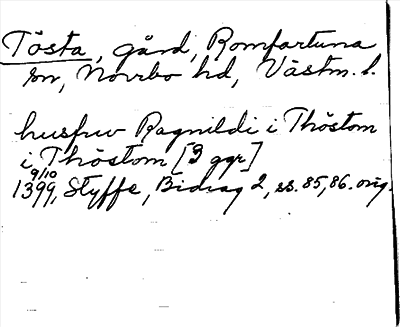 Tösta, gård, Romfartuna
sn, Norrbo hd, Västm. l.
husfru Ragnildi i Thöstom
i Thöstom [3 ggr]
9/10
1399, Styffe, Bidrag 2, ss. 85, 86. orig.